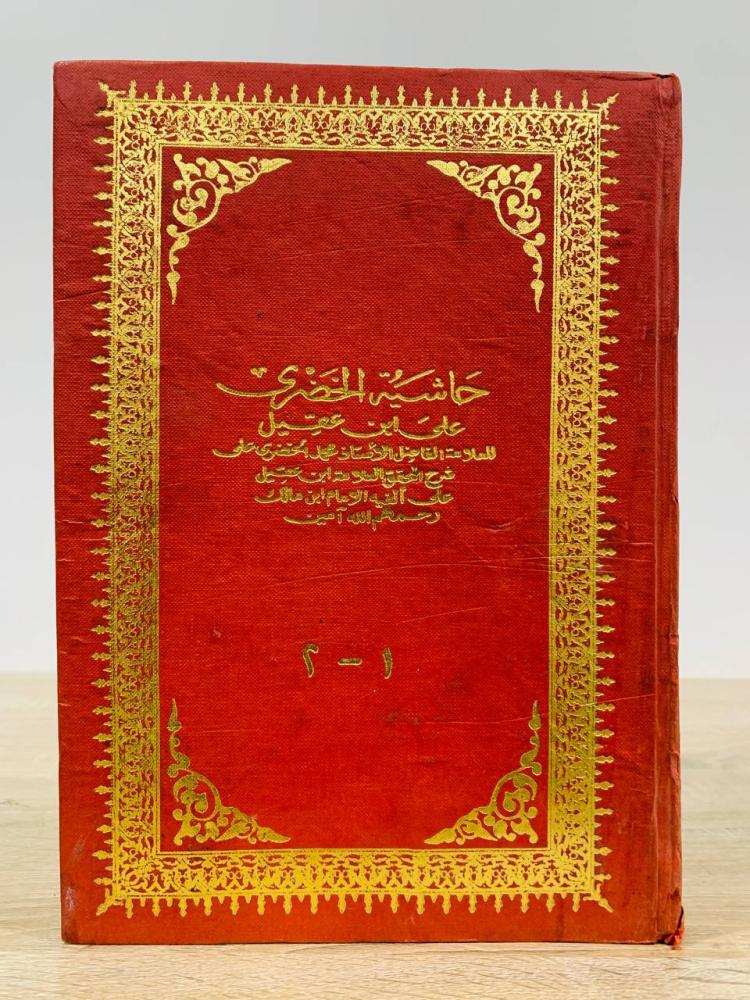 حَاشيَة الخضَرى
عَلىَ ابن عقيل
للعلامة الفاضل الأستاذ محمد الخضرى على
شرح المحقق العلامة ابن عقيل
على ألفية الامام ابن مالك
رحمهم الله آمين
١ - ٢